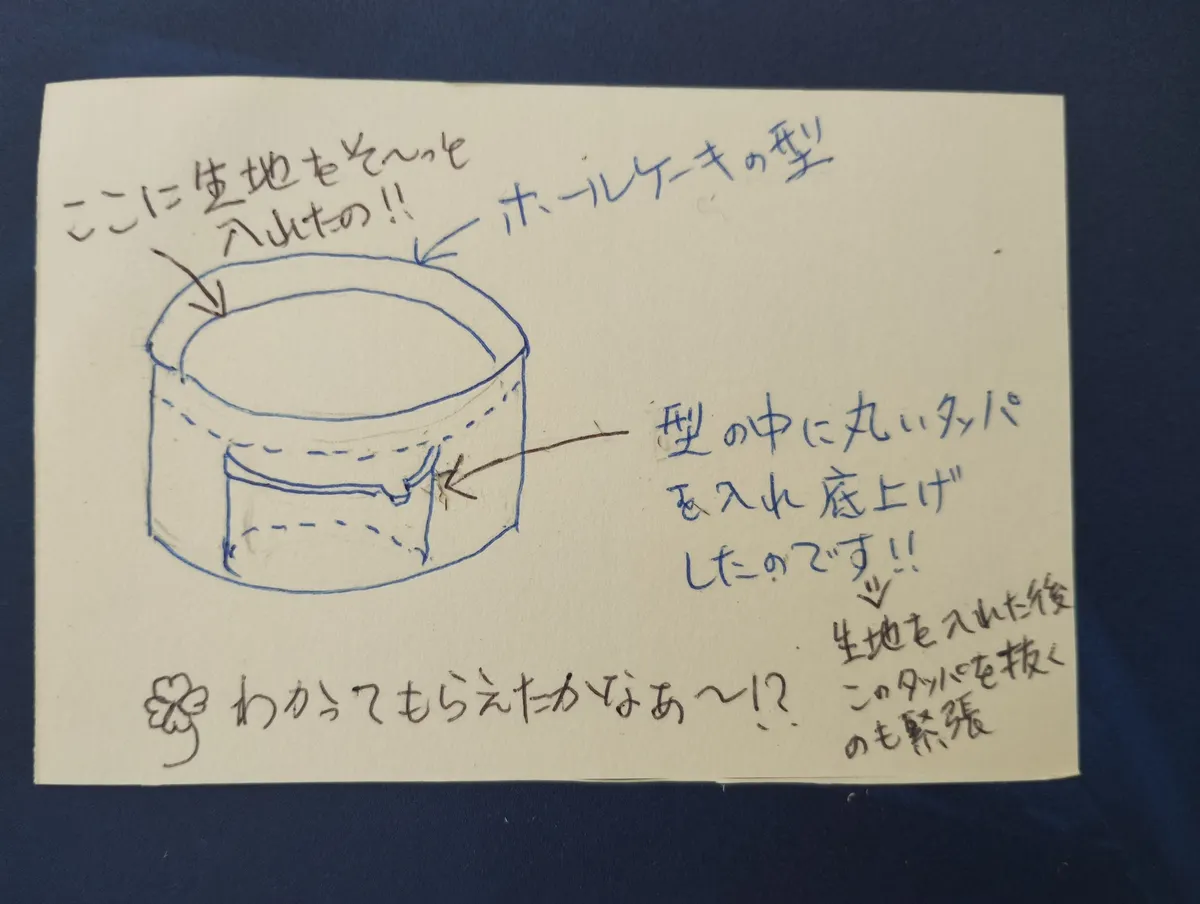 ここに生地をそ〜っと
入れたの!!
ホールケーキの型
型の中に丸いタッパ
を入れ底上げ
したのです!!
生地を入れた後
このタッパを抜く
のも緊張
わかってもらえたかなぁ〜!?